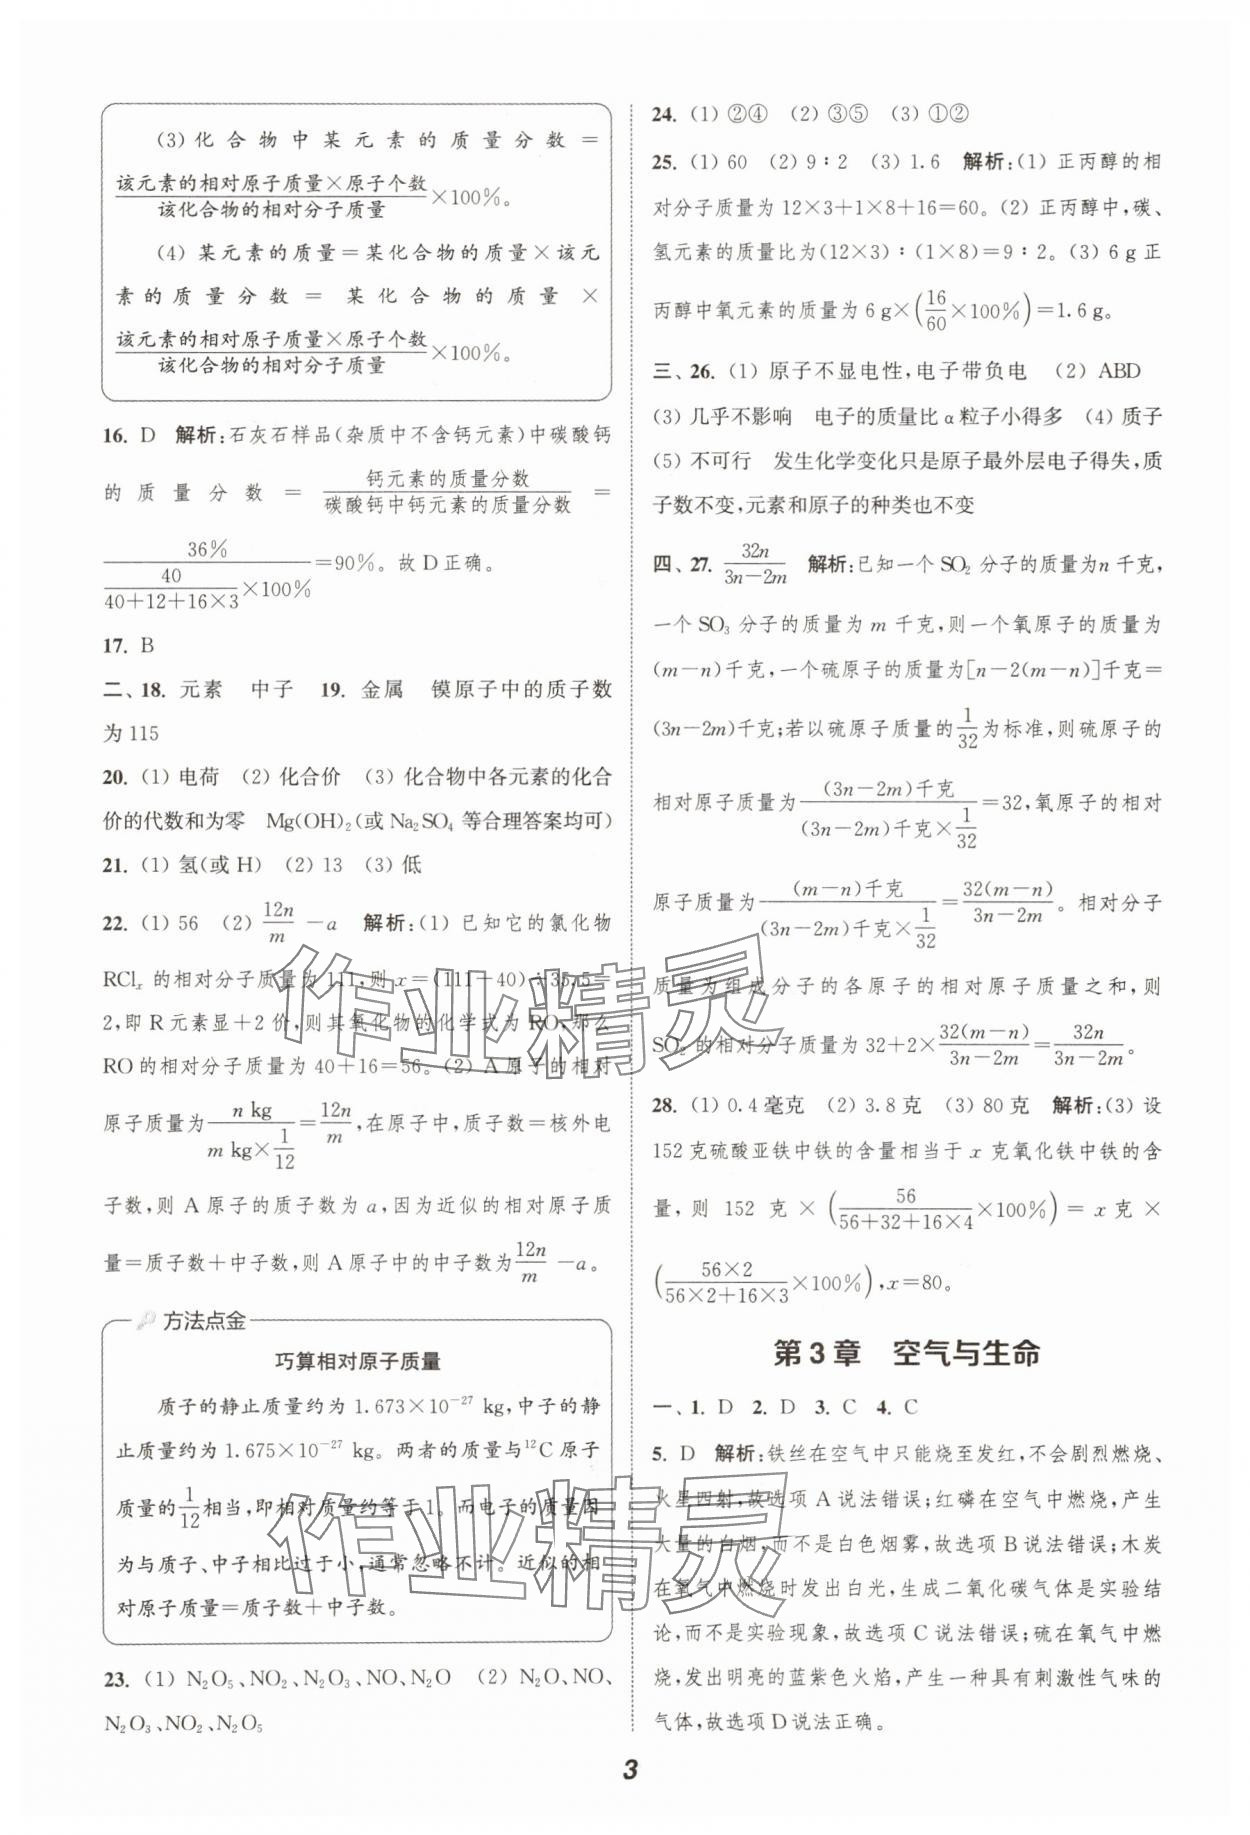 (3)化合物中某元素的质量分数＝
该元素的相对原子质量×原子个数/该化合物的相对分子质量×100%。
(4) 某元素的质量＝某化合物的质量×该元
素的质量分数＝ 某化合物的质量 ×
该元素的相对原子质量×原子个数/该化合物的相对分子质量×100%。
16. D 解析:石灰石样品(杂质中不含钙元素)中碳酸钙
的质量分数＝钙元素的质量分数/碳酸钙中钙元素的质量分数＝
36%/(40/(40+12+16×3)×100%)＝90%。故 D 正确。
17. B
二、18. 元素 中子 19. 金属 镆原子中的质子数
为 115
20. (1) 电荷 (2) 化合价 (3) 化合物中各元素的化合
价的代数和为零 Mg(OH)₂(或 Na₂SO₄ 等合理答案均可)
21. (1) 氢(或 H) (2) 13 (3) 低
22. (1) 56 (2) 12n/m－a 解析:(1) 已知它的氯化物
RClₓ 的相对分子质量为 111,则 x＝(111－40)÷35.5＝
2,即 R 元素显＋2 价,则其氧化物的化学式为 RO,那么
RO 的相对分子质量为 40＋16＝56。(2) A 原子的相对
原子质量为 n kg/(m kg×1/12)＝12n/m,在原子中,质子数＝核外电
子数,则 A 原子的质子数为 a,因为近似的相对原子质
量＝质子数＋中子数,则 A 原子中的中子数为12n/m－a。
方法点金
巧算相对原子质量
质子的静止质量约为 1.673×10⁻²⁷ kg,中子的静
止质量约为 1.675×10⁻²⁷ kg。两者的质量与¹²C 原子
质量的1/12相当,即相对质量约等于 1。而电子的质量因
为与质子、中子相比过于小,通常忽略不计。近似的相
对原子质量＝质子数＋中子数。
23. (1) N₂O₅、NO₂、N₂O₃、NO、N₂O (2) N₂O、NO、
N₂O₃、NO₂、N₂O₅
24. (1) ②④ (2) ③⑤ (3) ①②
25. (1) 60 (2) 9∶2 (3) 1.6 解析:(1) 正丙醇的相
对分子质量为 12×3＋1×8＋16＝60。(2) 正丙醇中,碳、
氢元素的质量比为(12×3)∶(1×8)＝9∶2。(3) 6 g 正
丙醇中氧元素的质量为 6 g×(16/60×100%)＝1.6 g。
三、26. (1) 原子不显电性,电子带负电 (2) ABD
(3) 几乎不影响 电子的质量比 α 粒子小得多 (4) 质子
(5) 不可行 发生化学变化只是原子最外层电子得失,质
子数不变,元素和原子的种类也不变
四、27. 32n/(3n－2m) 解析:已知一个 SO₂ 分子的质量为n 千克,
一个 SO₃ 分子的质量为 m 千克,则一个氧原子的质量为
(m－n)千克,一个硫原子的质量为[n－2(m－n)]千克＝
(3n－2m)千克;若以硫原子质量的1/32为标准,则硫原子的
相对原子质量为(3n－2m)千克/((3n－2m)千克×1/32)＝32,氧原子的相对
原子质量为(m－n)千克/((3n－2m)千克×1/32)＝32(m－n)/(3n－2m)。相对分子
质量为组成分子的各原子的相对原子质量之和,则
SO₂ 的相对分子质量为 32＋2×32(m－n)/(3n－2m)＝32n/(3n－2m)。
28. (1) 0.4 毫克 (2) 3.8 克 (3) 80 克 解析:(3) 设
152 克硫酸亚铁中铁的含量相当于 x 克氧化铁中铁的含
量,则 152 克×(56/(56+32+16×4)×100%)＝x 克×
(56×2/(56×2+16×3)×100%),x＝80。
第 3 章 空气与生命
一、1. D 2. D 3. C 4. C
5. D 解析:铁丝在空气中只能烧至发红,不会剧烈燃烧、
火星四射,故选项 A 说法错误;红磷在空气中燃烧,产生
大量的白烟,而不是白色烟雾,故选项 B 说法错误;木炭
在氧气中燃烧时发出白光,生成二氧化碳气体是实验结
论,而不是实验现象,故选项 C 说法错误;硫在氧气中燃
烧,发出明亮的蓝紫色火焰,产生一种具有刺激性气味的
气体,故选项 D 说法正确。
3
作业精灵
作业精灵